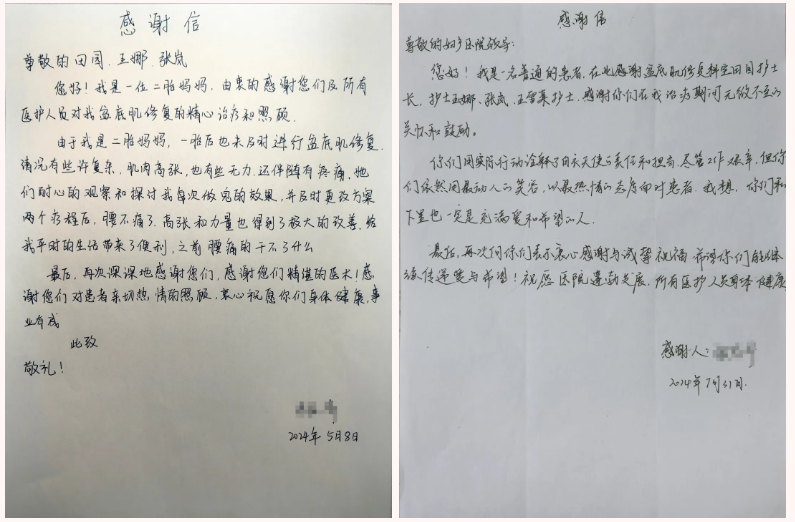 感谢信
尊敬的田园、王娜、张岚
您好！我是一位二胎妈妈，由衷的感谢您们及所有
医护人员对我盆底肌修复的精心治疗和照顾
由于我是二胎妈妈，一胎后也未及时进行盆底肌修复
情况有些许复杂，肌肉高张，也有些无力，还伴随有疼痛，她
们耐心的观察和探讨我每次做完的效果，并及时更改方案
两个疗程后，腰不痛了，高张和力量也得到了极大的改善，给
我平时的生活带来了便利，之前腰痛的干不了什么
最后，再次深深地感谢您们，感谢您们精湛的医术！感
谢您们对患者亲切热情的照顾，衷心祝愿你们身体健康，事
业有成
此致
敬礼！
2024年5月8日
感谢信
尊敬的妇产医院领导：
您好！我是一名普通的患者，在此感谢盆底肌修复科室田园护士
长，护士王娜、张岚，王雪 护士，感谢你们在我治疗期间无微不至的
关怀和鼓励。
你们用实际行动诠释了白衣天使的责任和担当，尽管工作艰辛，但你
们依然用最动人的笑容，以最热情的态度面对患者。我想，你们私
下里也一定是充满爱和希望的人。
最后，再次向你们表示衷心感谢与诚挚祝福，希望你们能继
续传递爱与希望！祝愿医院蓬勃发展，所有医护人员身体健康
感谢人：
2024年7月31日.